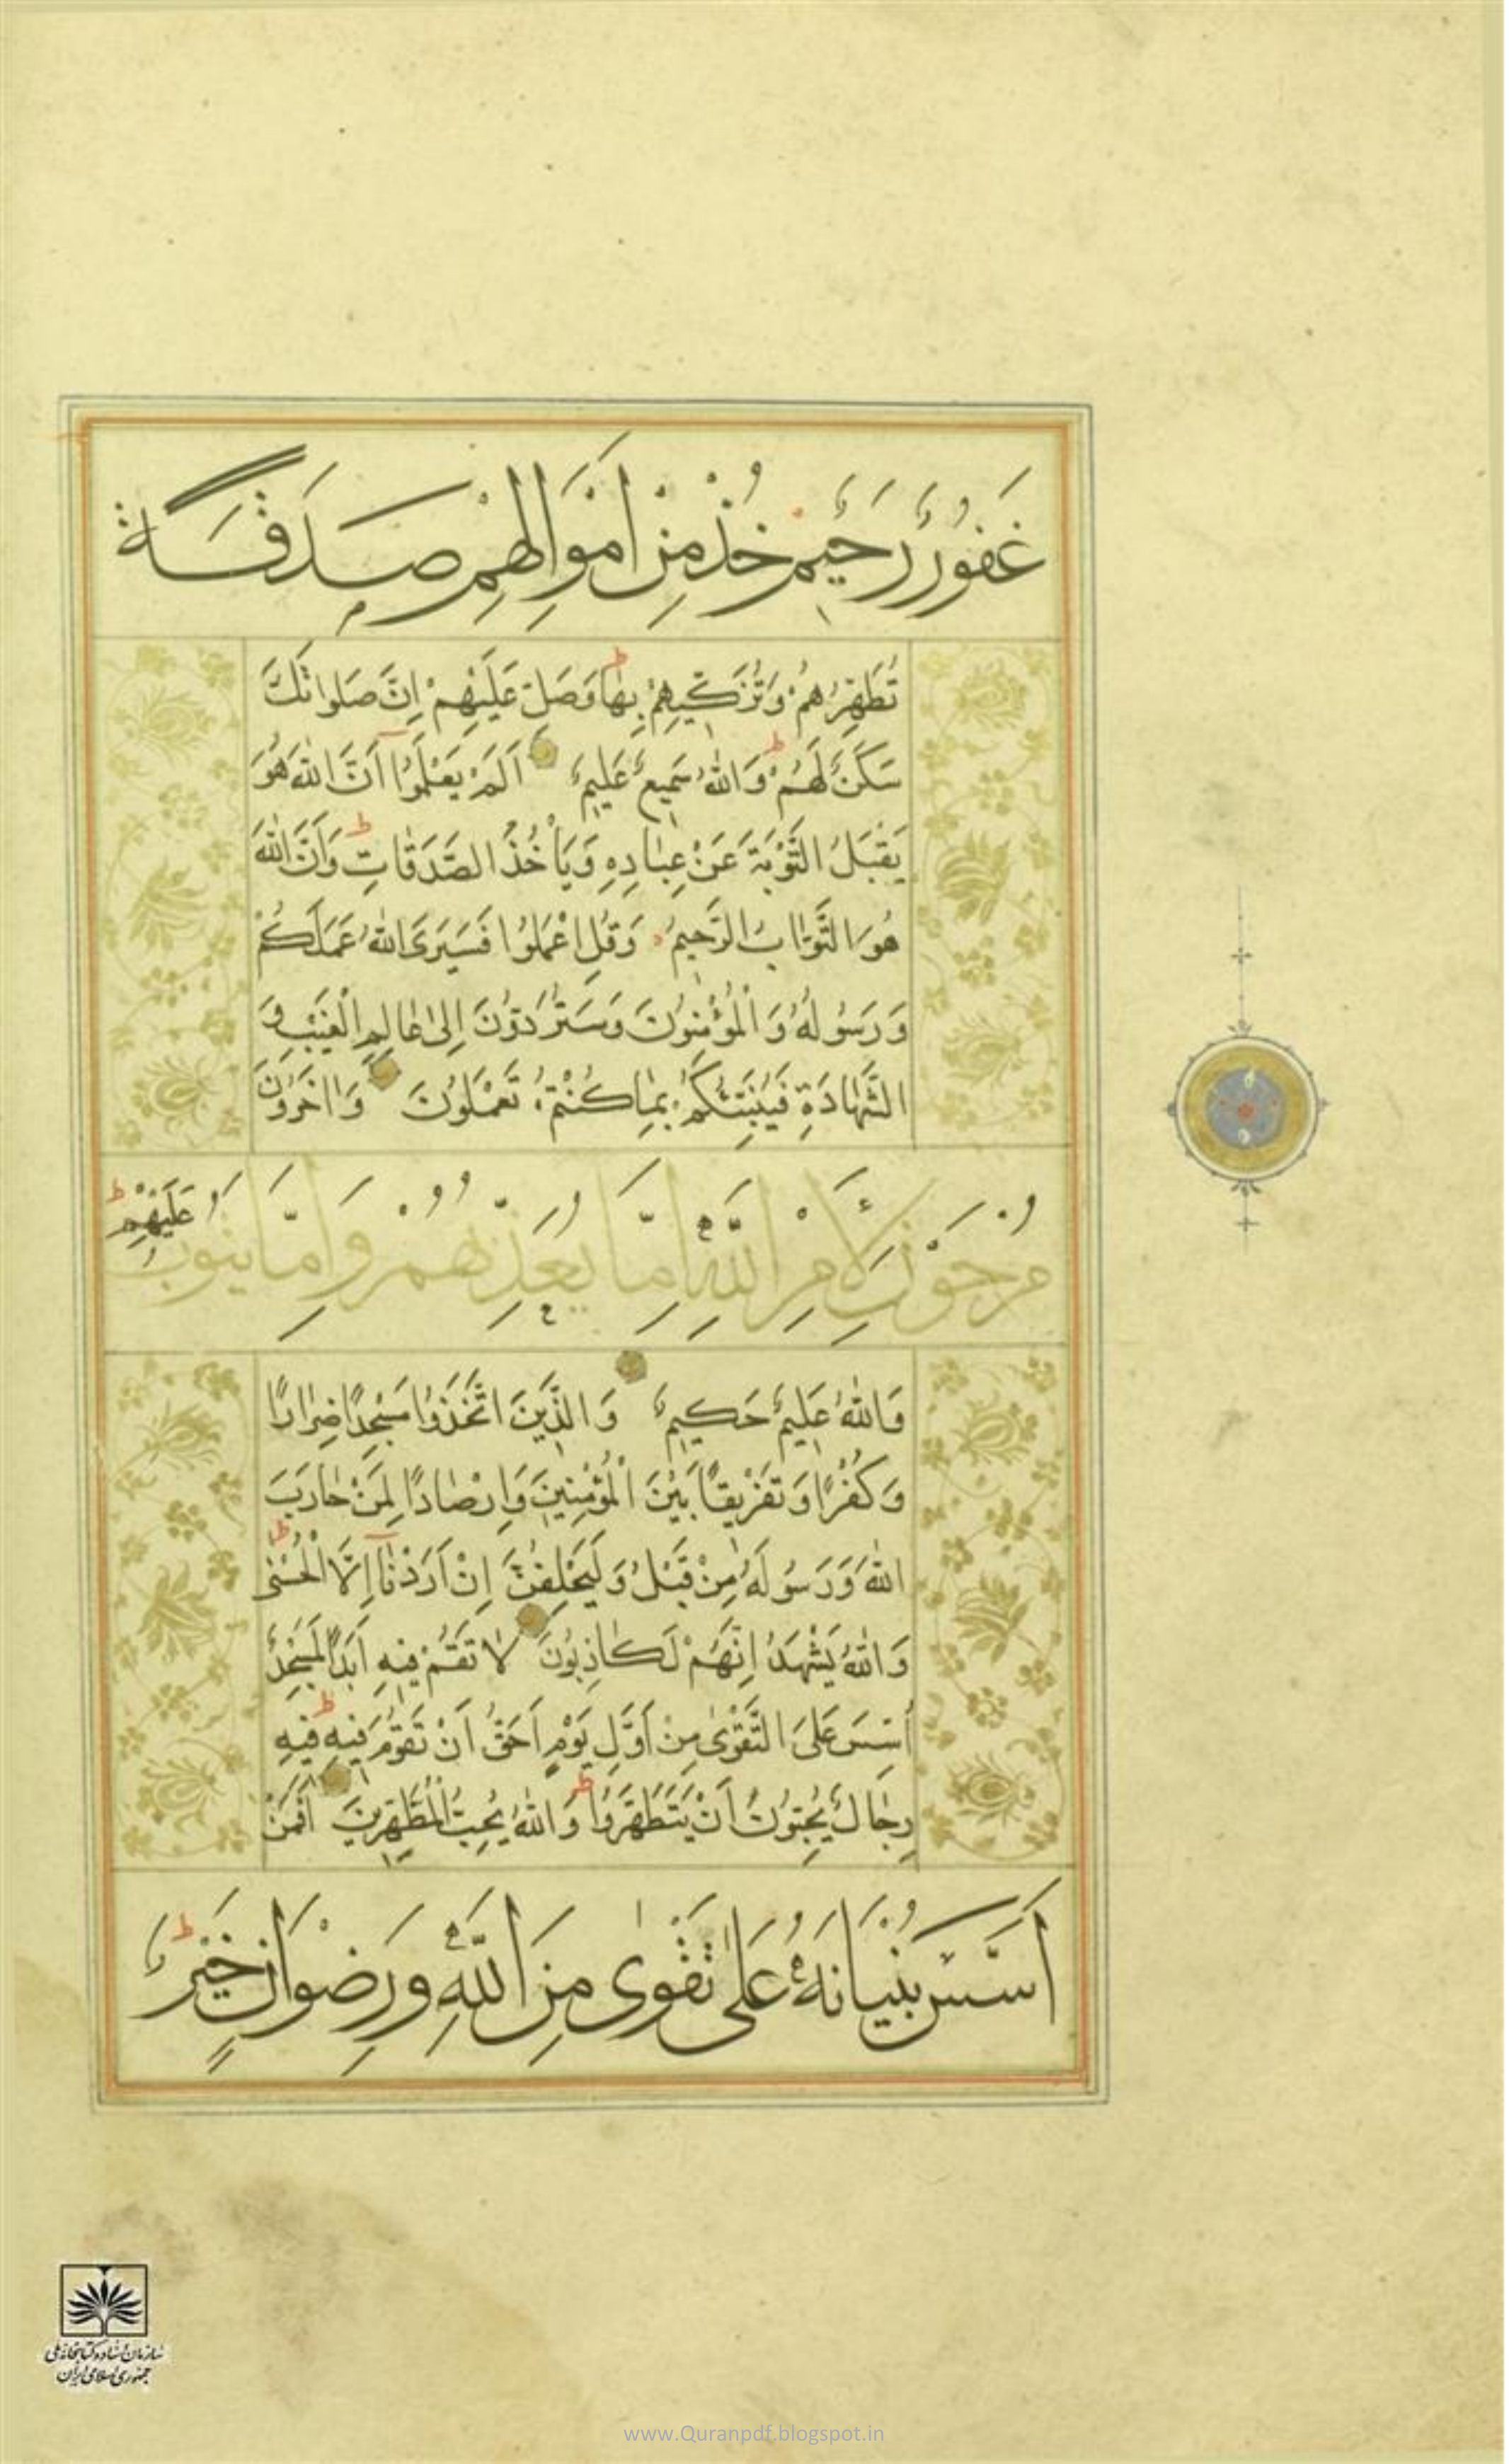 غَفُورٌ رَحِيمٌ خُذْ مِنْ اَمْوَالِهِمْ صَدَقَةً
تُطَهِّرُهُمْ وَتُزَكِّيهِمْ بِهَا وَصَلِّ عَلَيْهِمْ اِنَّ صَلَوَاتَكَ
سَكَنٌ لَهُمْ وَاللّٰهُ سَمِيعٌ عَلِيمٌ اَلَمْ يَعْلَمُوا اَنَّ اللّٰهَ هُوَ
يَقْبَلُ التَّوْبَةَ عَنْ عِبَادِهِ وَيَأْخُذُ الصَّدَقَاتِ وَاَنَّ اللّٰهَ
هُوَ التَّوَّابُ الرَّحِيمُ وَقُلِ اعْمَلُوا فَسَيَرَى اللّٰهُ عَمَلَكُمْ
وَرَسُولُهُ وَالْمُؤْمِنُونَ وَسَتُرَدُّونَ اِلٰى عَالِمِ الْغَيْبِ وَ
الشَّهَادَةِ فَيُنَبِّئُكُمْ بِمَا كُنْتُمْ تَعْمَلُونَ وَاٰخَرُونَ
مُرْجَوْنَ لِاَمْرِ اللّٰهِ اِمَّا يُعَذِّبُهُمْ وَاِمَّا يَتُوبُ عَلَيْهِمْ
وَاللّٰهُ عَلِيمٌ حَكِيمٌ وَالَّذِينَ اتَّخَذُوا مَسْجِدًا ضِرَارًا
وَكُفْرًا وَتَفْرِيقًا بَيْنَ الْمُؤْمِنِينَ وَاِرْصَادًا لِمَنْ حَارَبَ
اللّٰهَ وَرَسُولَهُ مِنْ قَبْلُ وَلَيَحْلِفُنَّ اِنْ اَرَدْنَا اِلَّا الْحُسْنٰى
وَاللّٰهُ يَشْهَدُ اِنَّهُمْ لَكَاذِبُونَ لَا تَقُمْ فِيهِ اَبَدًا لَمَسْجِدٌ
اُسِّسَ عَلَى التَّقْوٰى مِنْ اَوَّلِ يَوْمٍ اَحَقُّ اَنْ تَقُومَ فِيهِ فِيهِ
رِجَالٌ يُحِبُّونَ اَنْ يَتَطَهَّرُوا وَاللّٰهُ يُحِبُّ الْمُطَّهِّرِينَ اَفَمَنْ
اَسَّسَ بُنْيَانَهُ عَلٰى تَقْوٰى مِنَ اللّٰهِ وَرِضْوَانٍ خَيْرٌ
سازمان اسناد و کتابخانه ملی
جمهوری اسلامی ایران
www.Quranpdf.blogspot.in